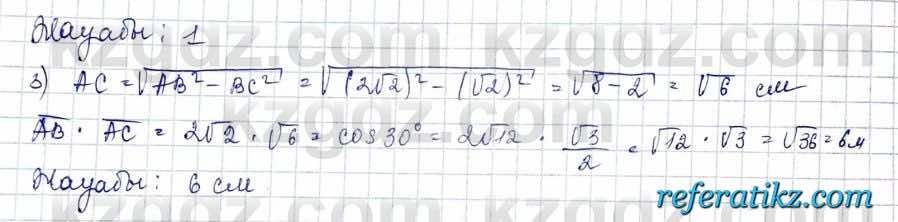 Жауабы: 1
3) AC = √AB² − BC² = √(2√2)² − (√2)² = √8 − 2 = √6 см
AB · AC = 2√2 · √6 = cos 30° = 2√12 · √3/2 = √12 · √3 = √36 = 6м
Жауабы: 6 см
referatikz.com